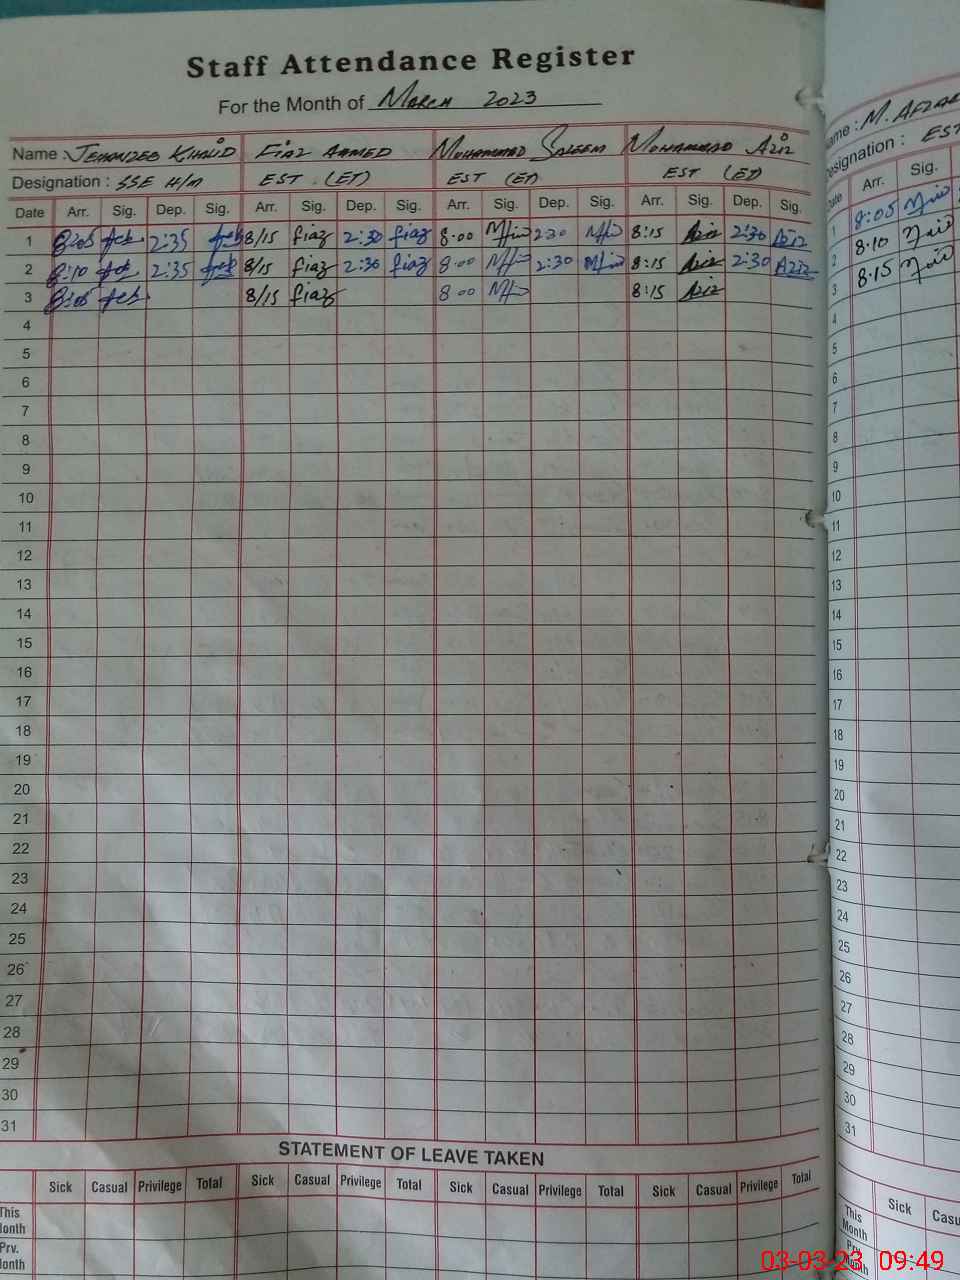 Staff Attendance Register
For the Month of March 2023
Name : Jehanzeb Khalid Fiaz Ahmed Muhammad Saleem Muhammad Aziz
Designation : SSE H/M EST (ET) EST (ET) EST (ET)
Date Arr. Sig. Dep. Sig. Arr. Sig. Dep. Sig. Arr. Sig. Dep. Sig. Arr. Sig. Dep. Sig.
1 8:05 2:35 8/15 fiaz 2:30 fiaz 8:00 2:30 8:15 Aziz 2:30 Aziz
2 8:10 2:35 8/15 fiaz 2:30 fiaz 8:00 2:30 8:15 Aziz 2:30 Aziz
3 8:05 8/15 fiaz 8:00 8:15 Aziz
4
5
6
7
8
9
10
11
12
13
14
15
16
17
18
19
20
21
22
23
24
25
26
27
28
29
30
31
STATEMENT OF LEAVE TAKEN
Sick Casual Privilege Total Sick Casual Privilege Total Sick Casual Privilege Total Sick Casual Privilege Total
This
Month
Prv.
Month
ame : M. AFZAL
esignation : EST
ate Arr. Sig.
1 8:05
2 8:10
3 8:15
4
5
6
7
8
9
10
11
12
13
14
15
16
17
18
19
20
21
22
23
24
25
26
27
28
29
30
31
Sick Casu
This
Month
Prv.
Month
03-03-23 09:49